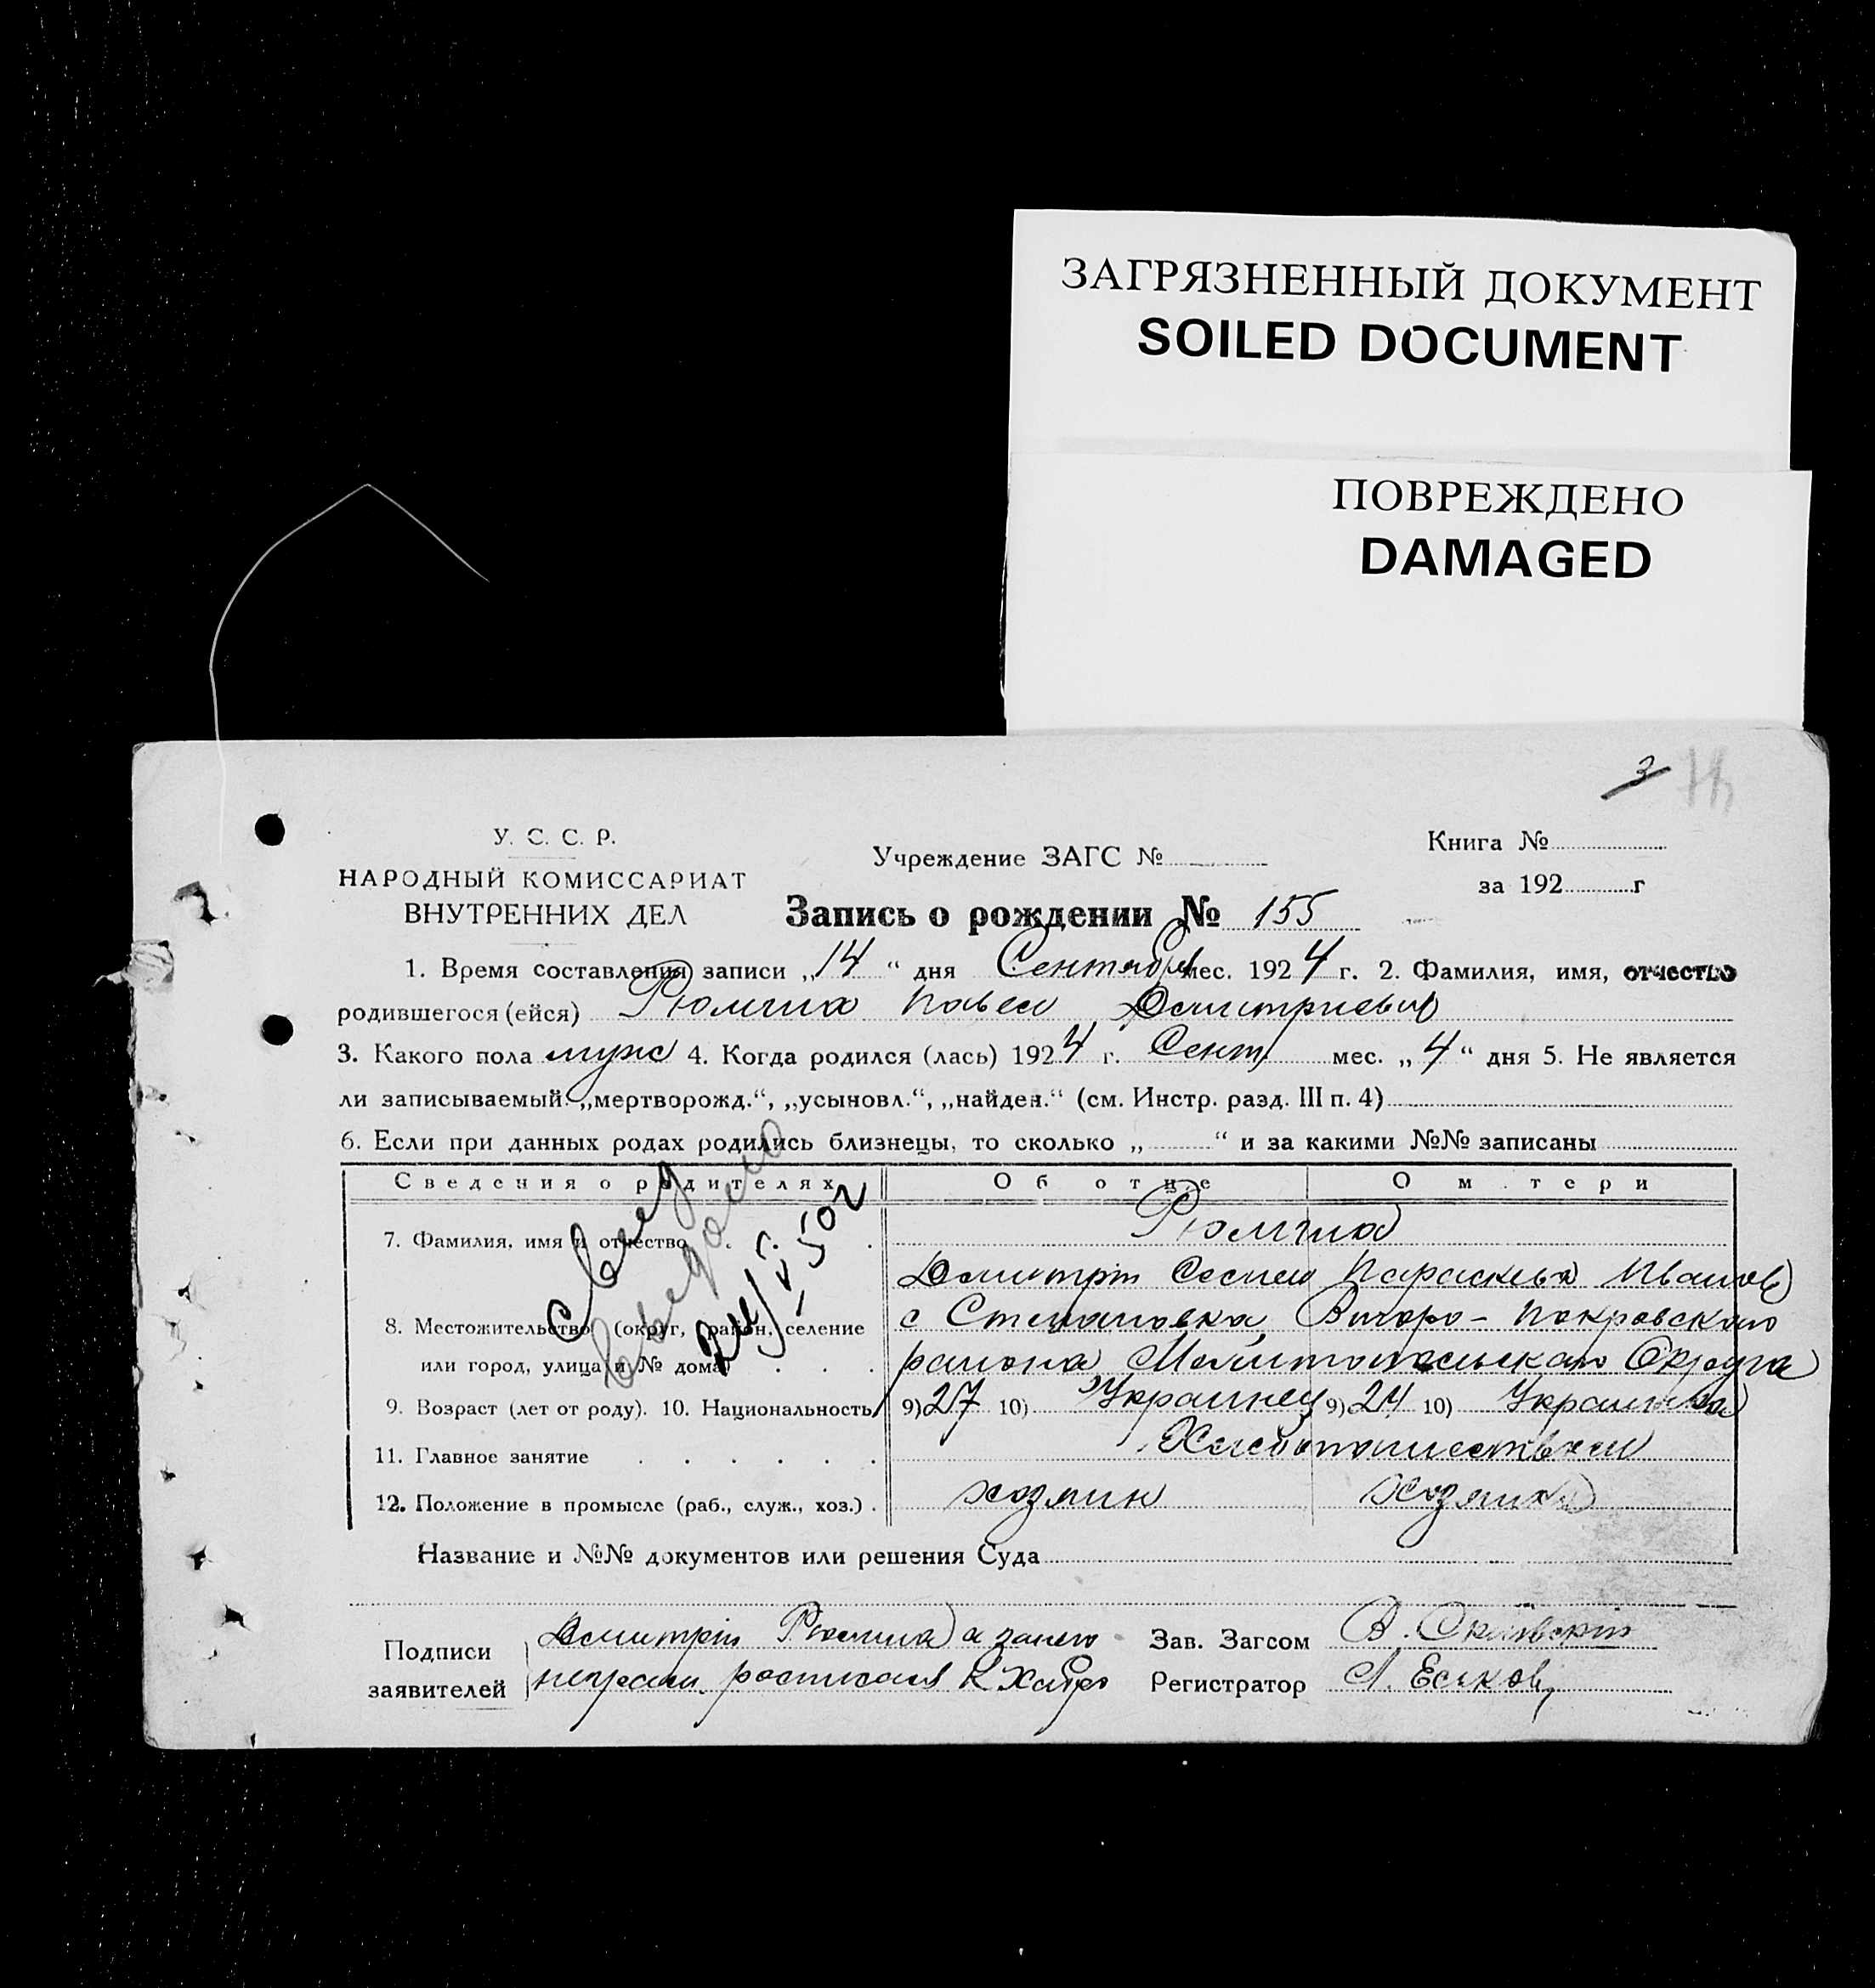 ЗАГРЯЗНЕННЫЙ ДОКУМЕНТ
SOILED DOCUMENT
ПОВРЕЖДЕНО
DAMAGED
3
У. С. С. Р.
НАРОДНЫЙ КОМИССАРИАТ
ВНУТРЕННИХ ДЕЛ
Учреждение ЗАГС №
Книга №
за 192 г
Запись о рождении № 155
1. Время составления записи „14“ дня Сентября мес. 1924 г. 2. Фамилия, имя, отчество
родившегося (ейся) Рюмша Павел Дмитриевич
3. Какого пола муж 4. Когда родился (лась) 1924 г. Сент мес. „4“ дня 5. Не является
ли записываемый: „мертворожд.“, „усыновл.“, „найден.“ (см. Инстр. разд. III п. 4)
6. Если при данных родах родились близнецы, то сколько „ “ и за какими №№ записаны
Сведения о родителях Об отце О м тери
7. Фамилия, имя и отчество Рюмша
Дмитрій Параскева Иванов
8. Местожительство (округ, район, селение с Степановка, Второ-Покровского
или город, улица и № дома) района Мелитопольскаго Округа
9. Возраст (лет от роду). 10. Национальность 9) 27 10) Украинец 9) 24 10) Украинка
11. Главное занятие Хлебопашеством
12. Положение в промысле (раб., служ., хоз.) хозяин хозяйка
Название и №№ документов или решения Суда
Подписи
заявителей
Дмитрій Рюмша а занего
неграм. росписался К
Зав. Загсом В.
Регистратор Л. Есиков